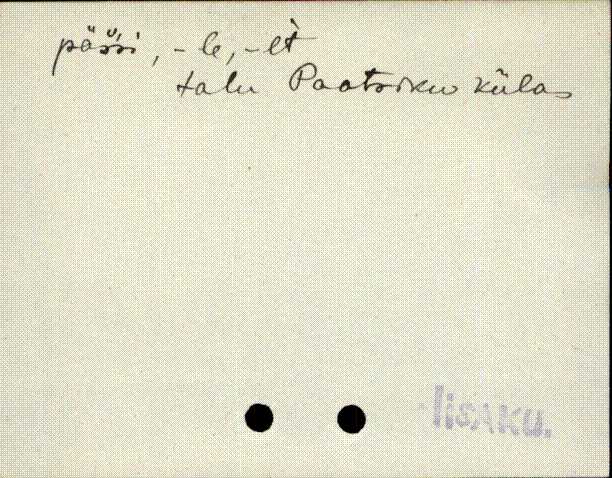 päśśi, -le, -lt̀
talu Paatsiku külas
Iisaku.